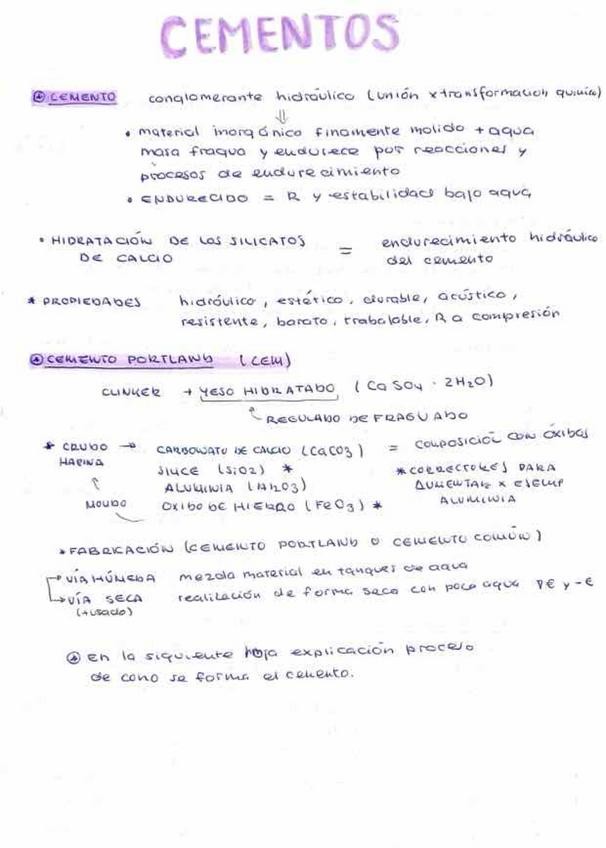 CEMENTOS
CEMENTO conglomerante hidráulico (unión x transformación química)
⇓
• material inorgánico finamente molido + agua
masa fragua y endurece por reacciones y
procesos de endurecimiento
• ENDURECIDO = R y estabilidad bajo agua
• HIDRATACIÓN DE LOS SILICATOS = endurecimiento hidráulico
DE CALCIO del cemento
* PROPIEDADES hidráulico, estético, durable, acústico,
resistente, barato, trabalable, R a compresión
CEMENTO PORTLAND (CEM)
CLINKER + YESO HIDRATADO (CaSO4 · 2H2O)
REGULADO DE FRAGUADO
* CRUDO → CARBONATO DE CALCIO (CaCO3) = COMPOSICIÓN CON ÓXIDOS
HARINA SILICE (SiO2) * * CORRECTORES PARA
ALUMINIA (Al2O3) AUMENTAR x EJEMP
MOLIDO OXIBO DE HIERRO (FeO3) * ALUMINIA
* FABRICACIÓN (CEMENTO PORTLAND O CEMENTO COMÚN)
→ VÍA HÚMEDA mezcla material en tanques de agua
→ VÍA SECA realización de forma seca con poca agua y -€
(+usado)
en la siguiente hoja explicación proceso
de cono se forma el cemento.